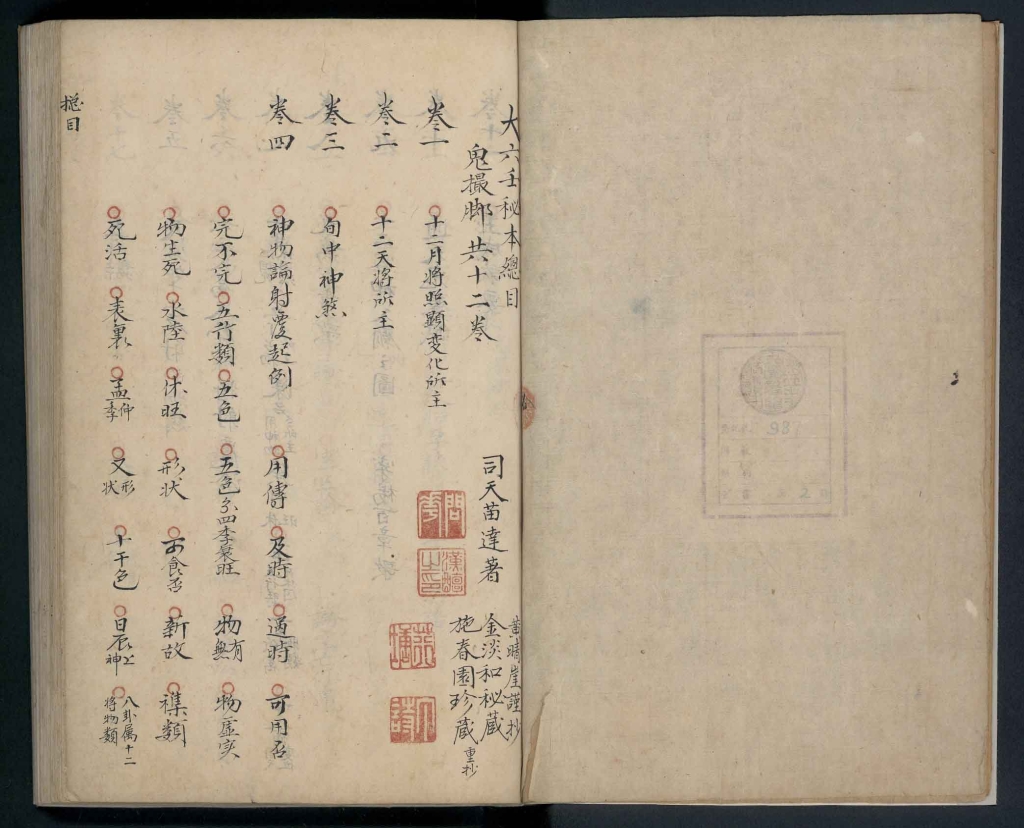 大六壬秘本總目
鬼撮脚共十二卷
司天苗達著
黄晴崖謹抄
金淡和秘藏
施春園珍藏重抄
卷一 十二月將照顯变化所主
卷二 十二天將所主
卷三 旬中神煞
卷四 神物論射覆起例 用傳 及時 過時 可用否
完不完 五行類 五色 五色分四季衰旺 物有無 物虛实
物生死 水陸 休旺 形状 可食否 新故 襍類
死活 表裏 孟仲季 又形状 十干色 日辰上神 八卦属十二將物類
總目
981